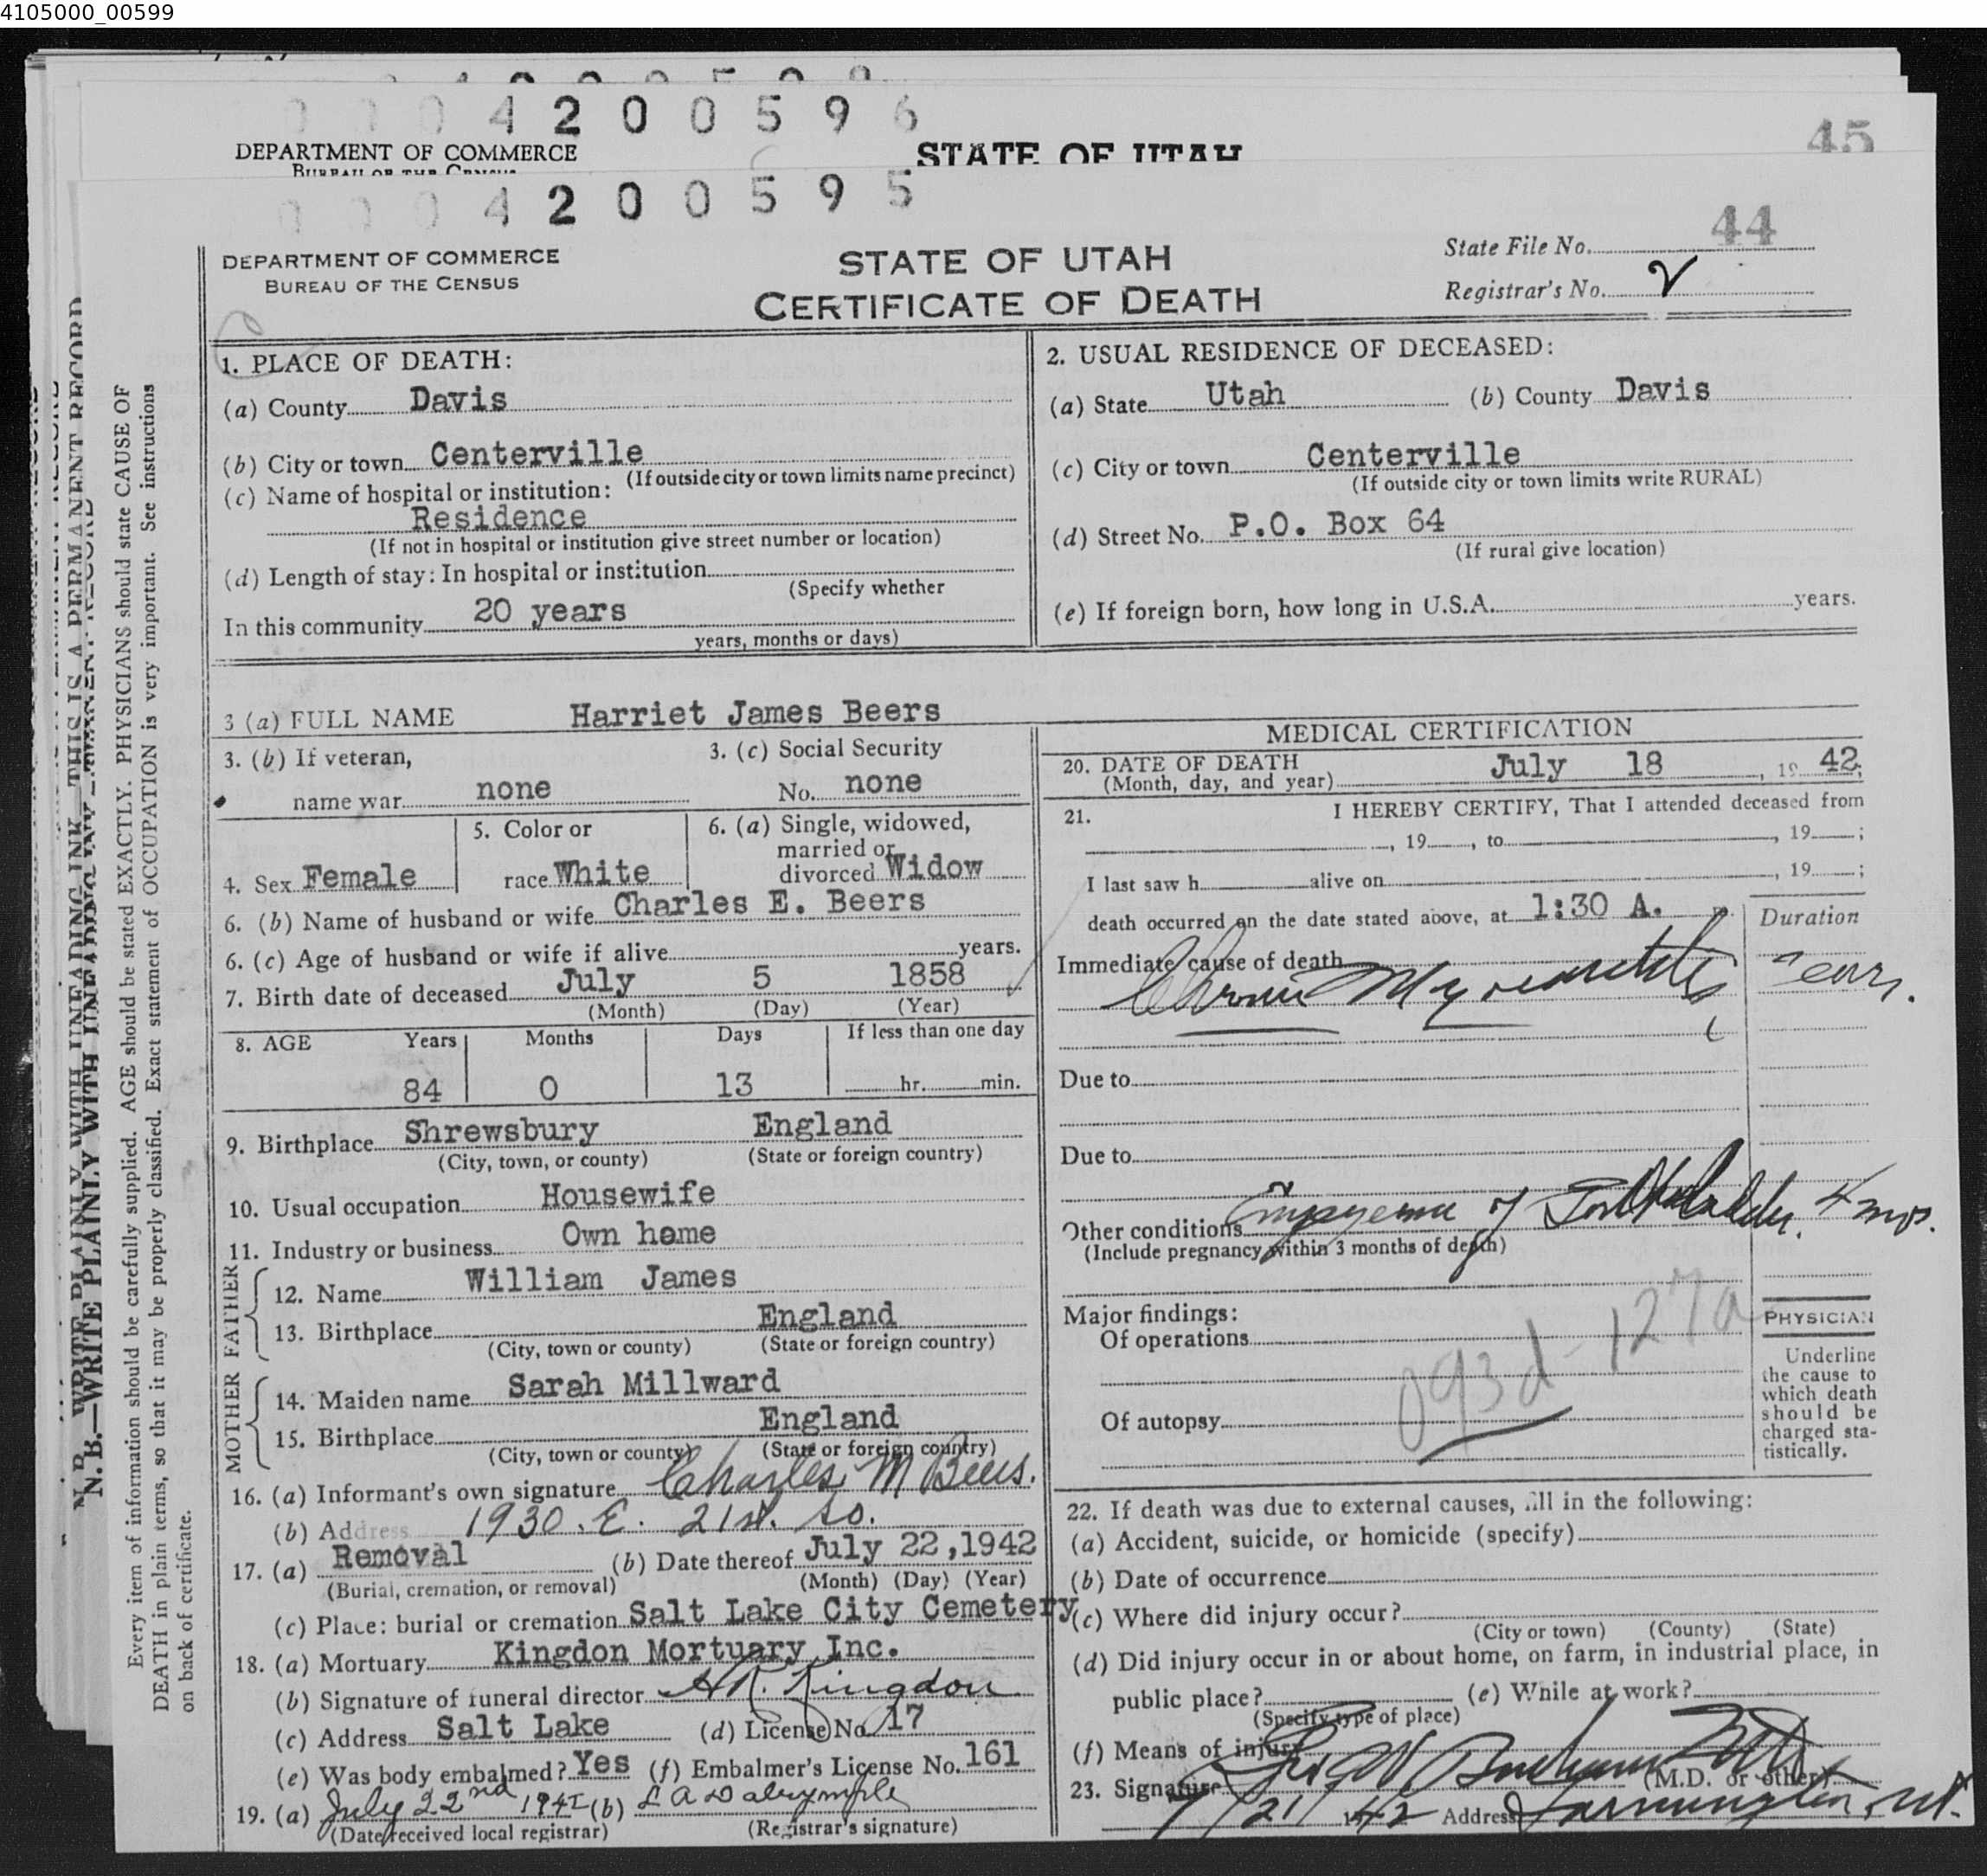 4105000_00599
0 0 0 4 2 0 0 5 9 6
45
DEPARTMENT OF COMMERCE
BUREAU OF THE CENSUS
STATE OF UTAH
0 0 0 4 2 0 0 5 9 5
44
DEPARTMENT OF COMMERCE
BUREAU OF THE CENSUS
STATE OF UTAH
CERTIFICATE OF DEATH
State File No.
Registrar's No. 2
N. B.—WRITE PLAINLY WITH UNFADING INK—THIS IS A PERMANENT RECORD
Every item of information should be carefully supplied. AGE should be stated EXACTLY. PHYSICIANS should state CAUSE OF
DEATH in plain terms, so that it may be properly classified. Exact statement of OCCUPATION is very important. See instructions
on back of certificate.
1. PLACE OF DEATH:
(a) County Davis
(b) City or town Centerville
(If outside city or town limits name precinct)
(c) Name of hospital or institution:
Residence
(If not in hospital or institution give street number or location)
(d) Length of stay: In hospital or institution
(Specify whether
In this community 20 years
years, months or days)
2. USUAL RESIDENCE OF DECEASED:
(a) State Utah (b) County Davis
(c) City or town Centerville
(If outside city or town limits write RURAL)
(d) Street No. P.O. Box 64
(If rural give location)
(e) If foreign born, how long in U.S.A. years.
3 (a) FULL NAME Harriet James Beers
3. (b) If veteran,
name war none
3. (c) Social Security
No. none
4. Sex Female
5. Color or
race White
6. (a) Single, widowed,
married or
divorced Widow
6. (b) Name of husband or wife Charles E. Beers
6. (c) Age of husband or wife if alive years.
7. Birth date of deceased July 5 1858
(Month) (Day) (Year)
8. AGE Years Months Days If less than one day
84 0 13 hr. min.
9. Birthplace Shrewsbury England
(City, town, or county) (State or foreign country)
10. Usual occupation Housewife
11. Industry or business Own home
FATHER
12. Name William James
13. Birthplace England
(City, town or county) (State or foreign country)
MOTHER
14. Maiden name Sarah Millward
15. Birthplace England
(City, town or county) (State or foreign country)
16. (a) Informant's own signature Charles M Beers.
(b) Address 1930. E. 21st. So.
17. (a) Removal (b) Date thereof July 22,1942
(Burial, cremation, or removal) (Month) (Day) (Year)
(c) Place: burial or cremation Salt Lake City Cemetery
18. (a) Mortuary Kingdon Mortuary Inc.
(b) Signature of funeral director A.R. Kingdon
(c) Address Salt Lake (d) License No. 17
(e) Was body embalmed? Yes (f) Embalmer's License No. 161
19. (a) July 22nd 1942 (b) L A Dalrymple
(Date received local registrar) (Registrar's signature)
MEDICAL CERTIFICATION
20. DATE OF DEATH
(Month, day, and year) July 18, 19 42;
21. I HEREBY CERTIFY, That I attended deceased from
, 19 , to , 19 ;
I last saw h alive on , 19 ;
death occurred on the date stated above, at 1:30 A.
Duration
Immediate cause of death
Chronic Myocarditis Years.
Due to
Due to
Other conditions Empyema of Gallbladder. 4 mos.
(Include pregnancy within 3 months of death)
Major findings:
Of operations
093d 127a
Of autopsy
PHYSICIAN
Underline
the cause to
which death
should be
charged sta-
tistically.
22. If death was due to external causes, fill in the following:
(a) Accident, suicide, or homicide (specify)
(b) Date of occurrence
(c) Where did injury occur?
(City or town) (County) (State)
(d) Did injury occur in or about home, on farm, in industrial place, in
public place? (e) While at work?
(Specify type of place)
(f) Means of injury
23. Signature (M.D. or other)
7/21/42 Address Farmington, Ut.